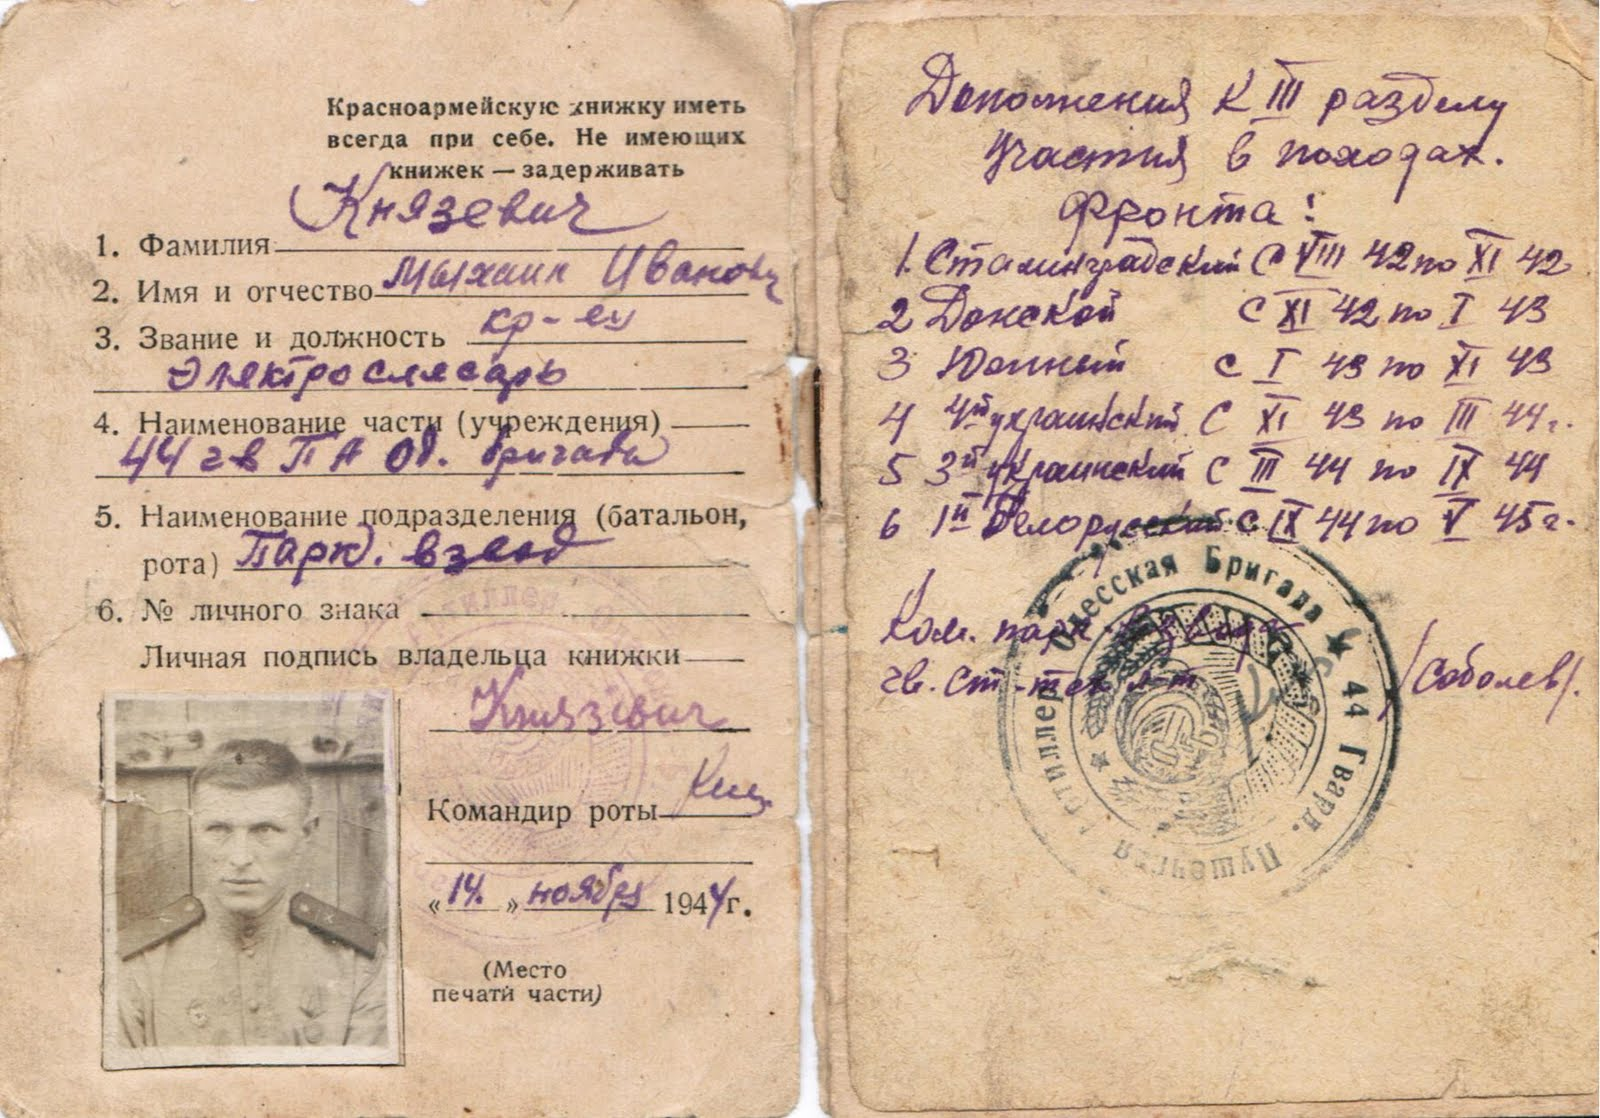 Красноармейскую книжку иметь
всегда при себе. Не имеющих
книжек — задерживать
1. Фамилия Князевич
2. Имя и отчество Михаил Иванович
3. Звание и должность кр-ец
Электрослесарь
4. Наименование части (учреждения)
44 гв ПА Од. бригада
5. Наименование подразделения (батальон,
рота) Парк. взвод
6. № личного знака
Личная подпись владельца книжки
Князевич
Командир роты
«14» ноября 1944г.
(Место
печати части)
Дополнения к III разделу
Участия в походах.
Фронта:
1. Сталинградский с VIII 42 по XI 42
2 Донской с XI 42 по I 43
3 Южный с I 43 по XI 43
4 4й украинский с XI 43 по III 44 г.
5 3й украинский с III 44 по IX 44
6 1й Белорусский с IX 44 по V 45 г.
Ком. парк. взвода
гв. ст-тех л-т /Соболев/.
44 Гвард. Пушечная Артиллер. Одесская Бригада